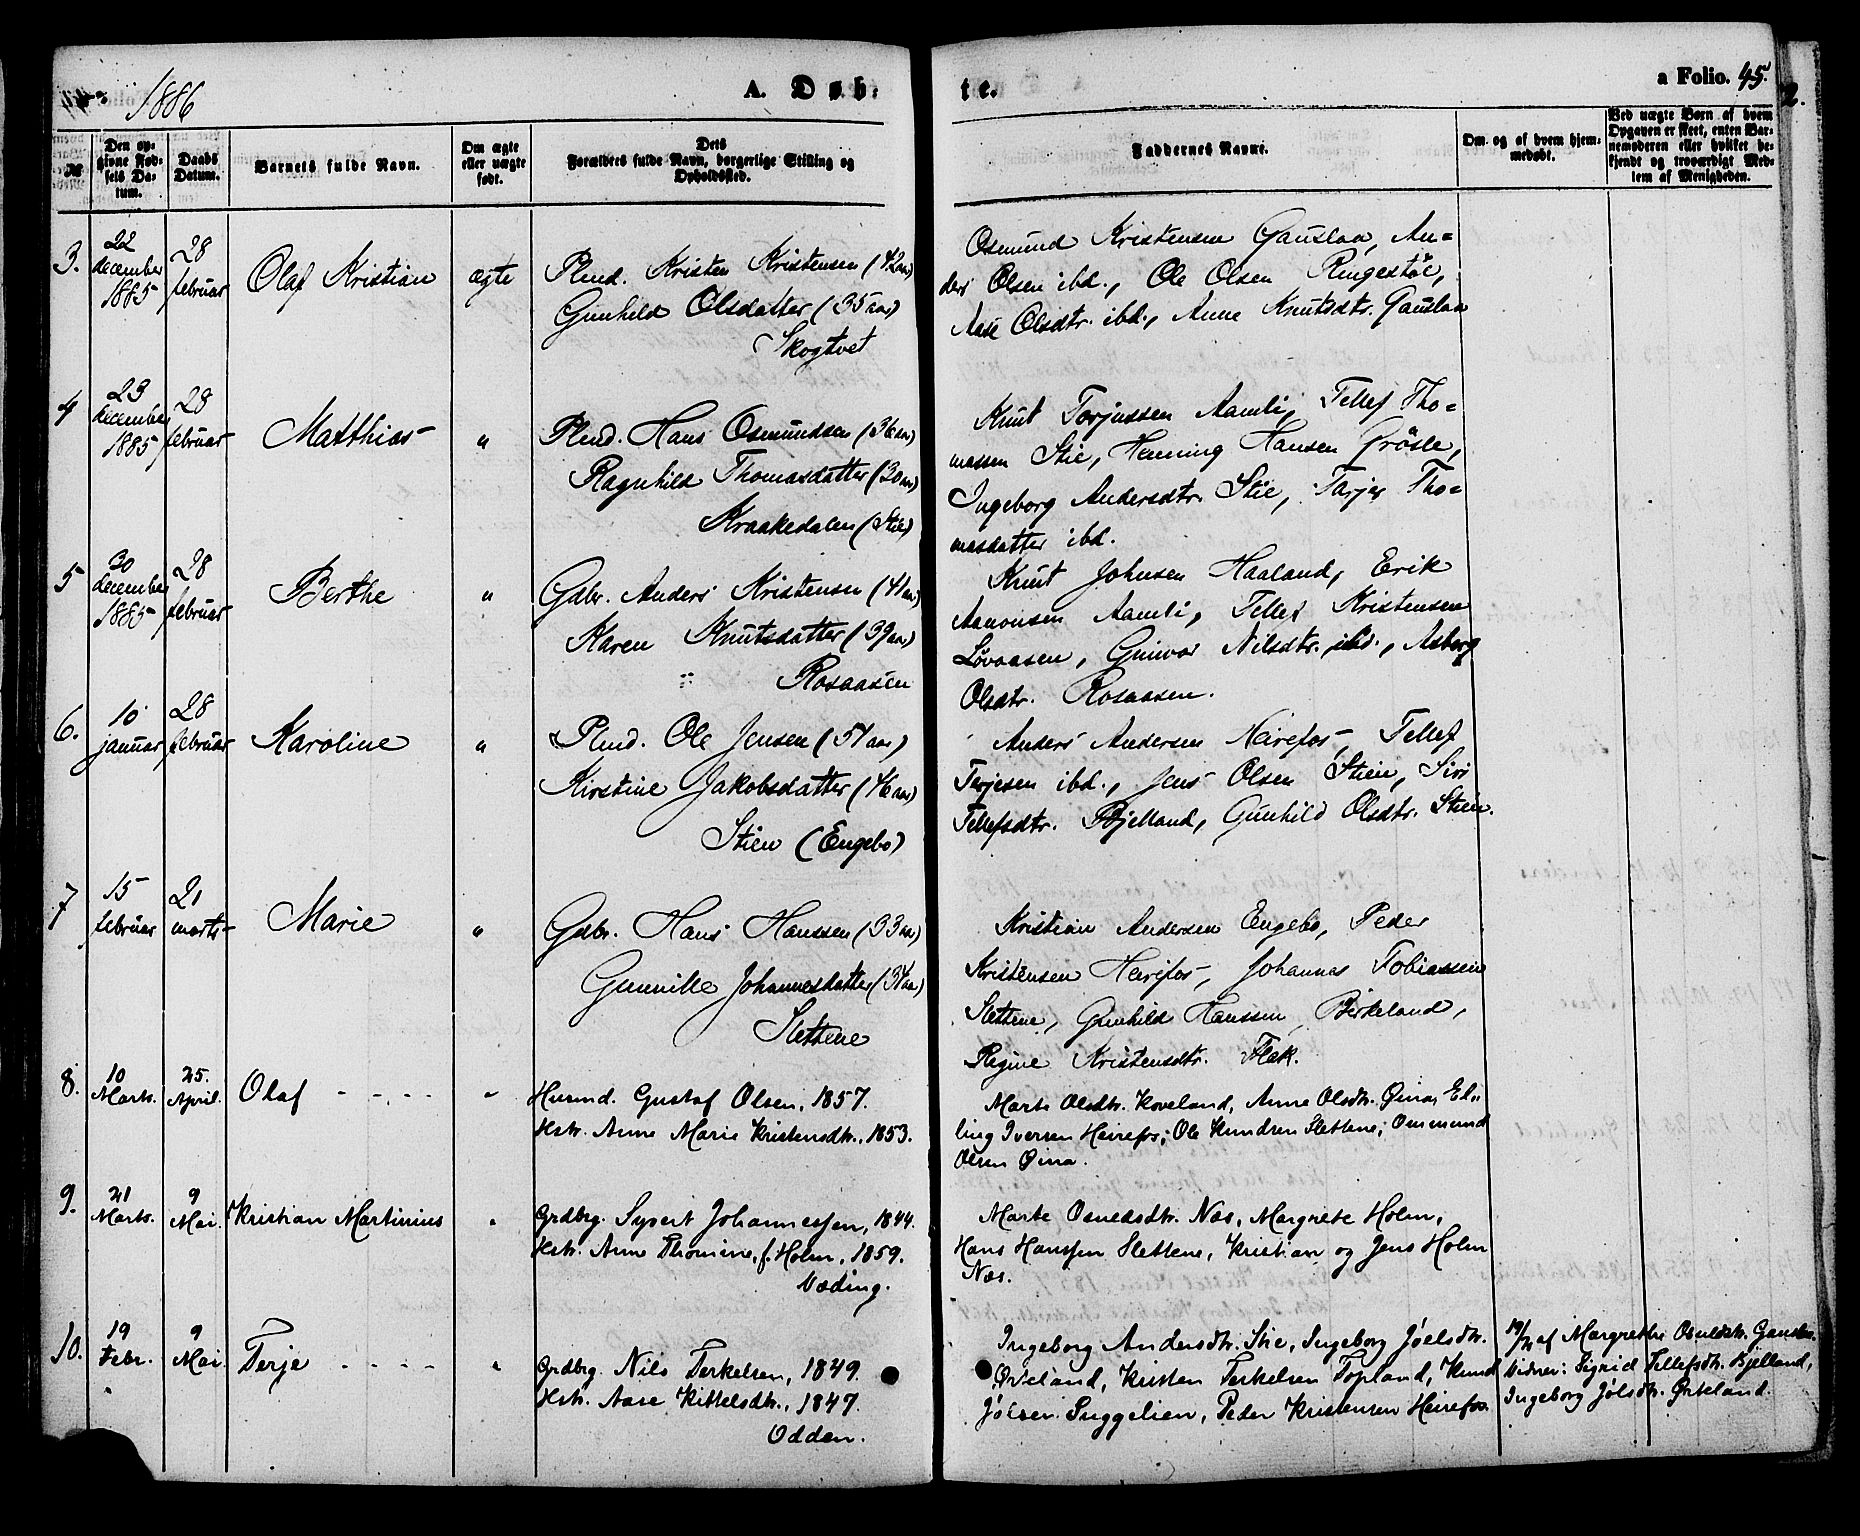 1886
A. Døb-
te.
a Folio. 45.
2.
№
Den opgivne Fødsels Datum.
Daabs Datum.
Barnets fulde Navn.
Om ægte eller uægte født.
Dets Forældres fulde Navn, borgerlige Stilling og Opholdssted.
Faddernes Navne.
Om og af hvem hjemmedøbt.
Ved uægte Børn af hvem Opgaven er skeet, enten Barnemoderen eller hvilket bekjendt og troværdigt Medlem af Menigheden.
3. 22 december 1885 28 februar Olaf Kristian ægte
Plmd. Kristen Kristensen (42 aar)
Gunhild Olsdatter (35 aar)
Skogtvet
Osmund Kristensen Gauslaa, An-
ders Olsen ibd., Ole Olsen Ringestöl,
Aase Olsdtr. ibd., Anne Knutsdtr. Gauslaa
4 23 december 1885 28 februar Matthias "
Plmd. Hans Osmundsen (36 aar)
Ragnhild Thomasdatter (30 aar)
Kraakedalen (Stie)
Knut Torjussen Aamli, Tellef Tho-
massen Stie, Henning Hansen Grösle,
Ingeborg Andersdtr. Stie, Tarjer Tho-
masdatter ibd.
5 30 december 1885 28 februar Berthe "
Gdbr. Anders Kristensen (41 aar)
Karen Knutsdatter (39 aar)
Rosaasen
Knut Johnsen Haaland, Erik
Aanonsen Aamli, Tellef Kristensen
Løvaasen, Gunvor Nilsdtr. ibd., Asborg
Olsdtr. Rosaasen.
6. 10 januar 28 februar Karoline "
Plmd. Ole Jensen (51 aar)
Kirstine Jakobsdatter (46 aar)
Stien (Engebo)
Anders Andersen Heirefos, Tellef
Terjesen ibd., Jens Olsen Stien, Siri
Tellefsdtr. Bjelland, Gunhild Olsdtr. Stien.
7 15 februar 21 marts Marie "
Gdbr. Hans Hanssen (33 aar)
Gunville Johannesdatter (31 aar)
Slettene
Kristian Andersen Engebo, Peder
Kristensen Heirefos, Johannes Tobiassen
Slettene, Gunhild Hanssen Birkeland,
Regine Kristensdtr. Flak.
8. 10 Marts. 25. April. Olaf - - - - "
Husmd. Gustaf Olsen, 1857.
Hstr. Anne Marie Kristensdtr., 1853.
Marte Olsdtr. Koveland, Anne Olsdtr. Øina, El-
ling Iversen Heirefos; Ole Knudsen Slettene; Ommund
Olsen Øina.
9. 21 Marts. 9 Mai. Kristian Martinius "
Grdbrg. Syvert Johannessen, 1844.
Hstr. Anne Thomine, f. Holm, 1859.
Væding.
Marte Osuldsdtr. Næs, Margrete Holm,
Hans Hanssen Slettene, Kristian og Jens Holm
Næs.
10. 19 Febr. 9 Mai. Terje - - - - "
Grdbrg. Nils Terkelsen, 1849.
Hstr. Aase Kittelsdtr., 1847.
Odden.
Ingeborg Andersdtr. Stie, Ingeborg Jöelsdtr.
Øveland, Kristen Terkelsen Topland, Knud
Jölsen Suggelien, Peder Kristensen Heirefos.
af Margrethe Osuldsdtr. Gauslaa.
Vidner: Sigrid Tellefsdtr. Bjelland,
Ingeborg Jølsdtr.